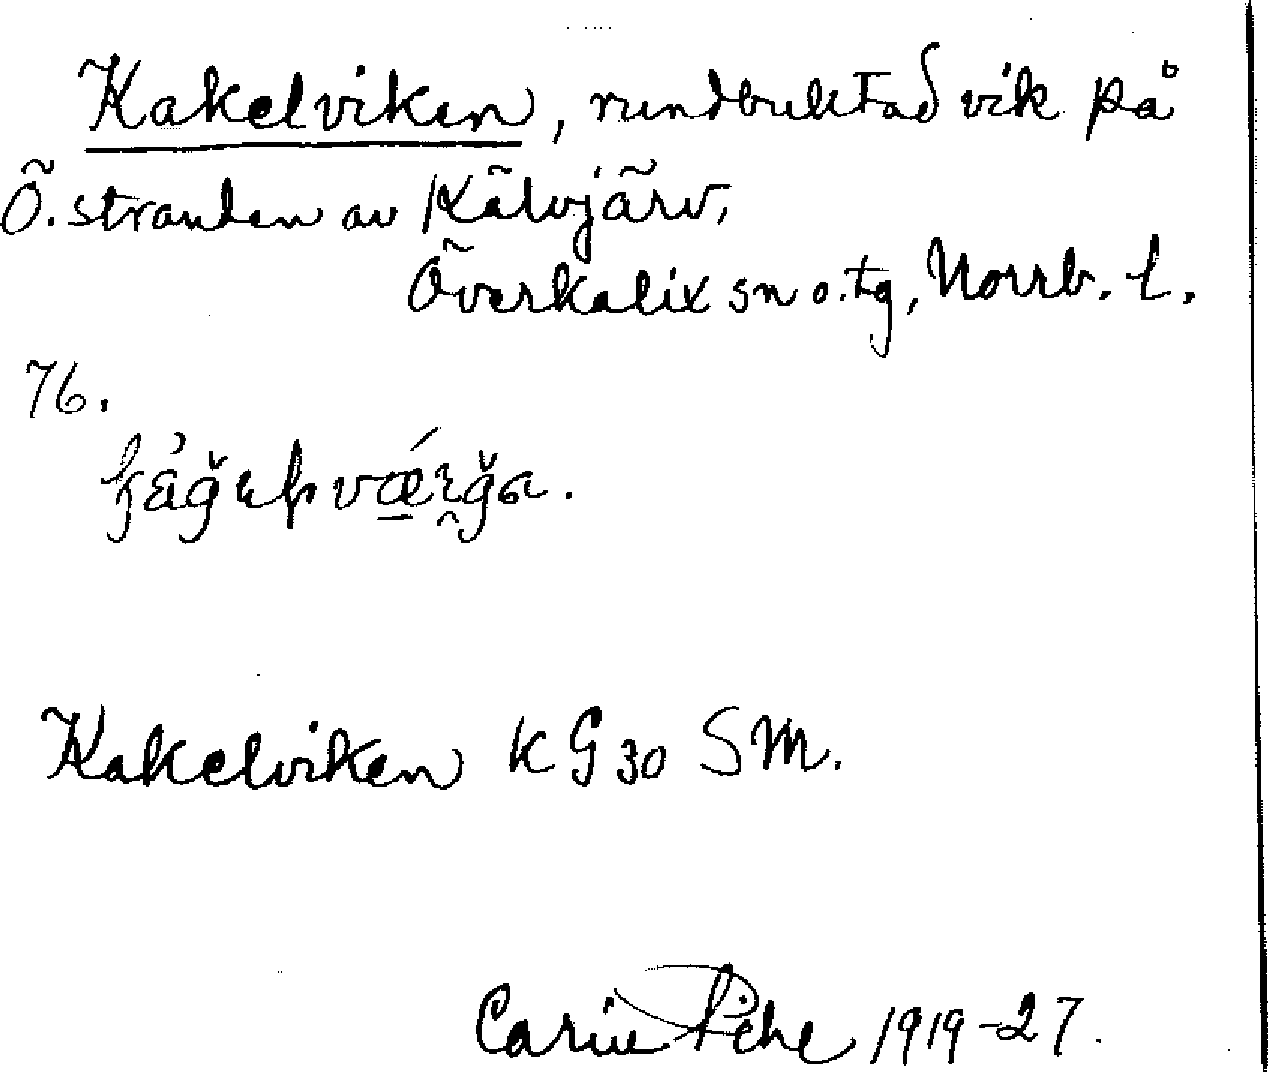 Kakelviken, rundbuktad vik på
Ö. stranden av Kälvjärv,
Överkalix sn o. tg, Norrb. l.
76.
Kakelviken KG30 SM.
Carin Pihl 1919-27.